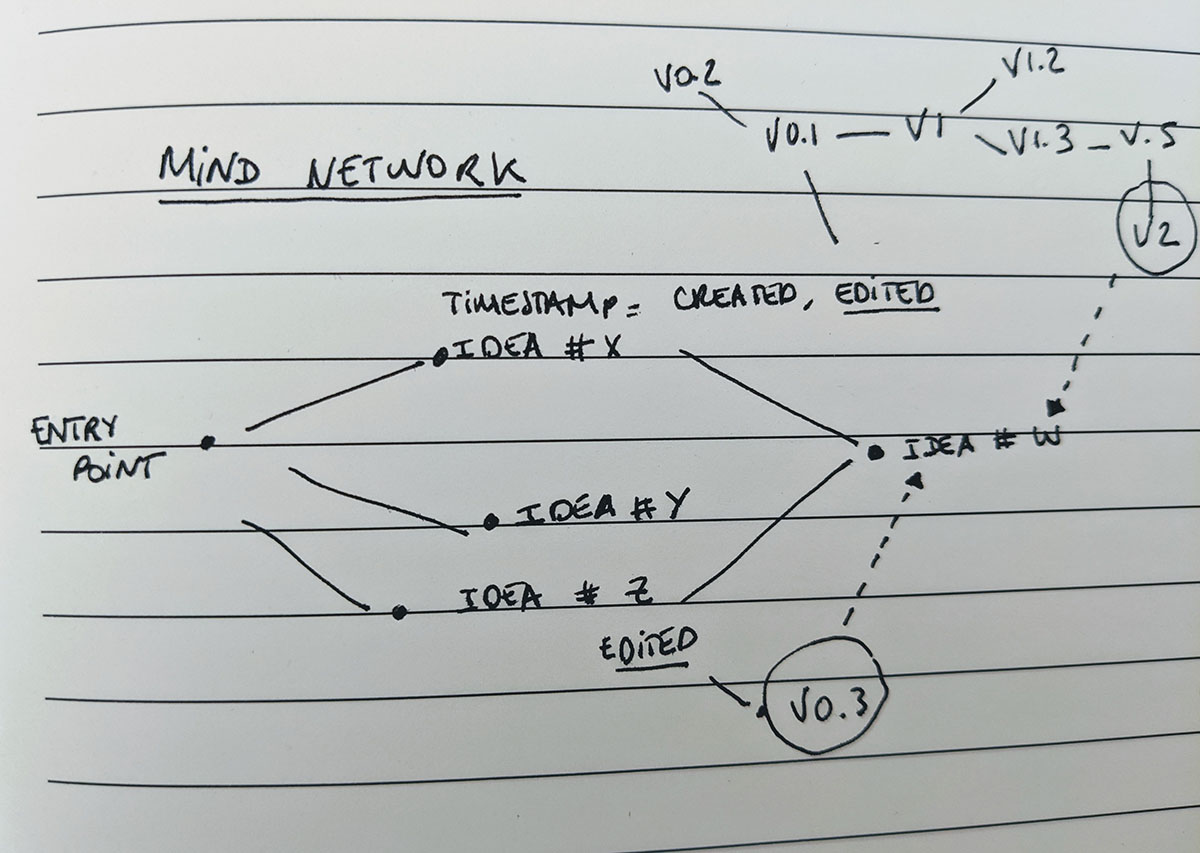 V0.2
V1.2
V0.1 — V1
V1.3 – V.5
MiND NETWORK
V2
TiMESTAMP = CREATED, EDiTED
IDEA # X
ENTRY
POiNT
IDEA # W
IDEA # Y
IDEA # Z
EDiTED
V0.3